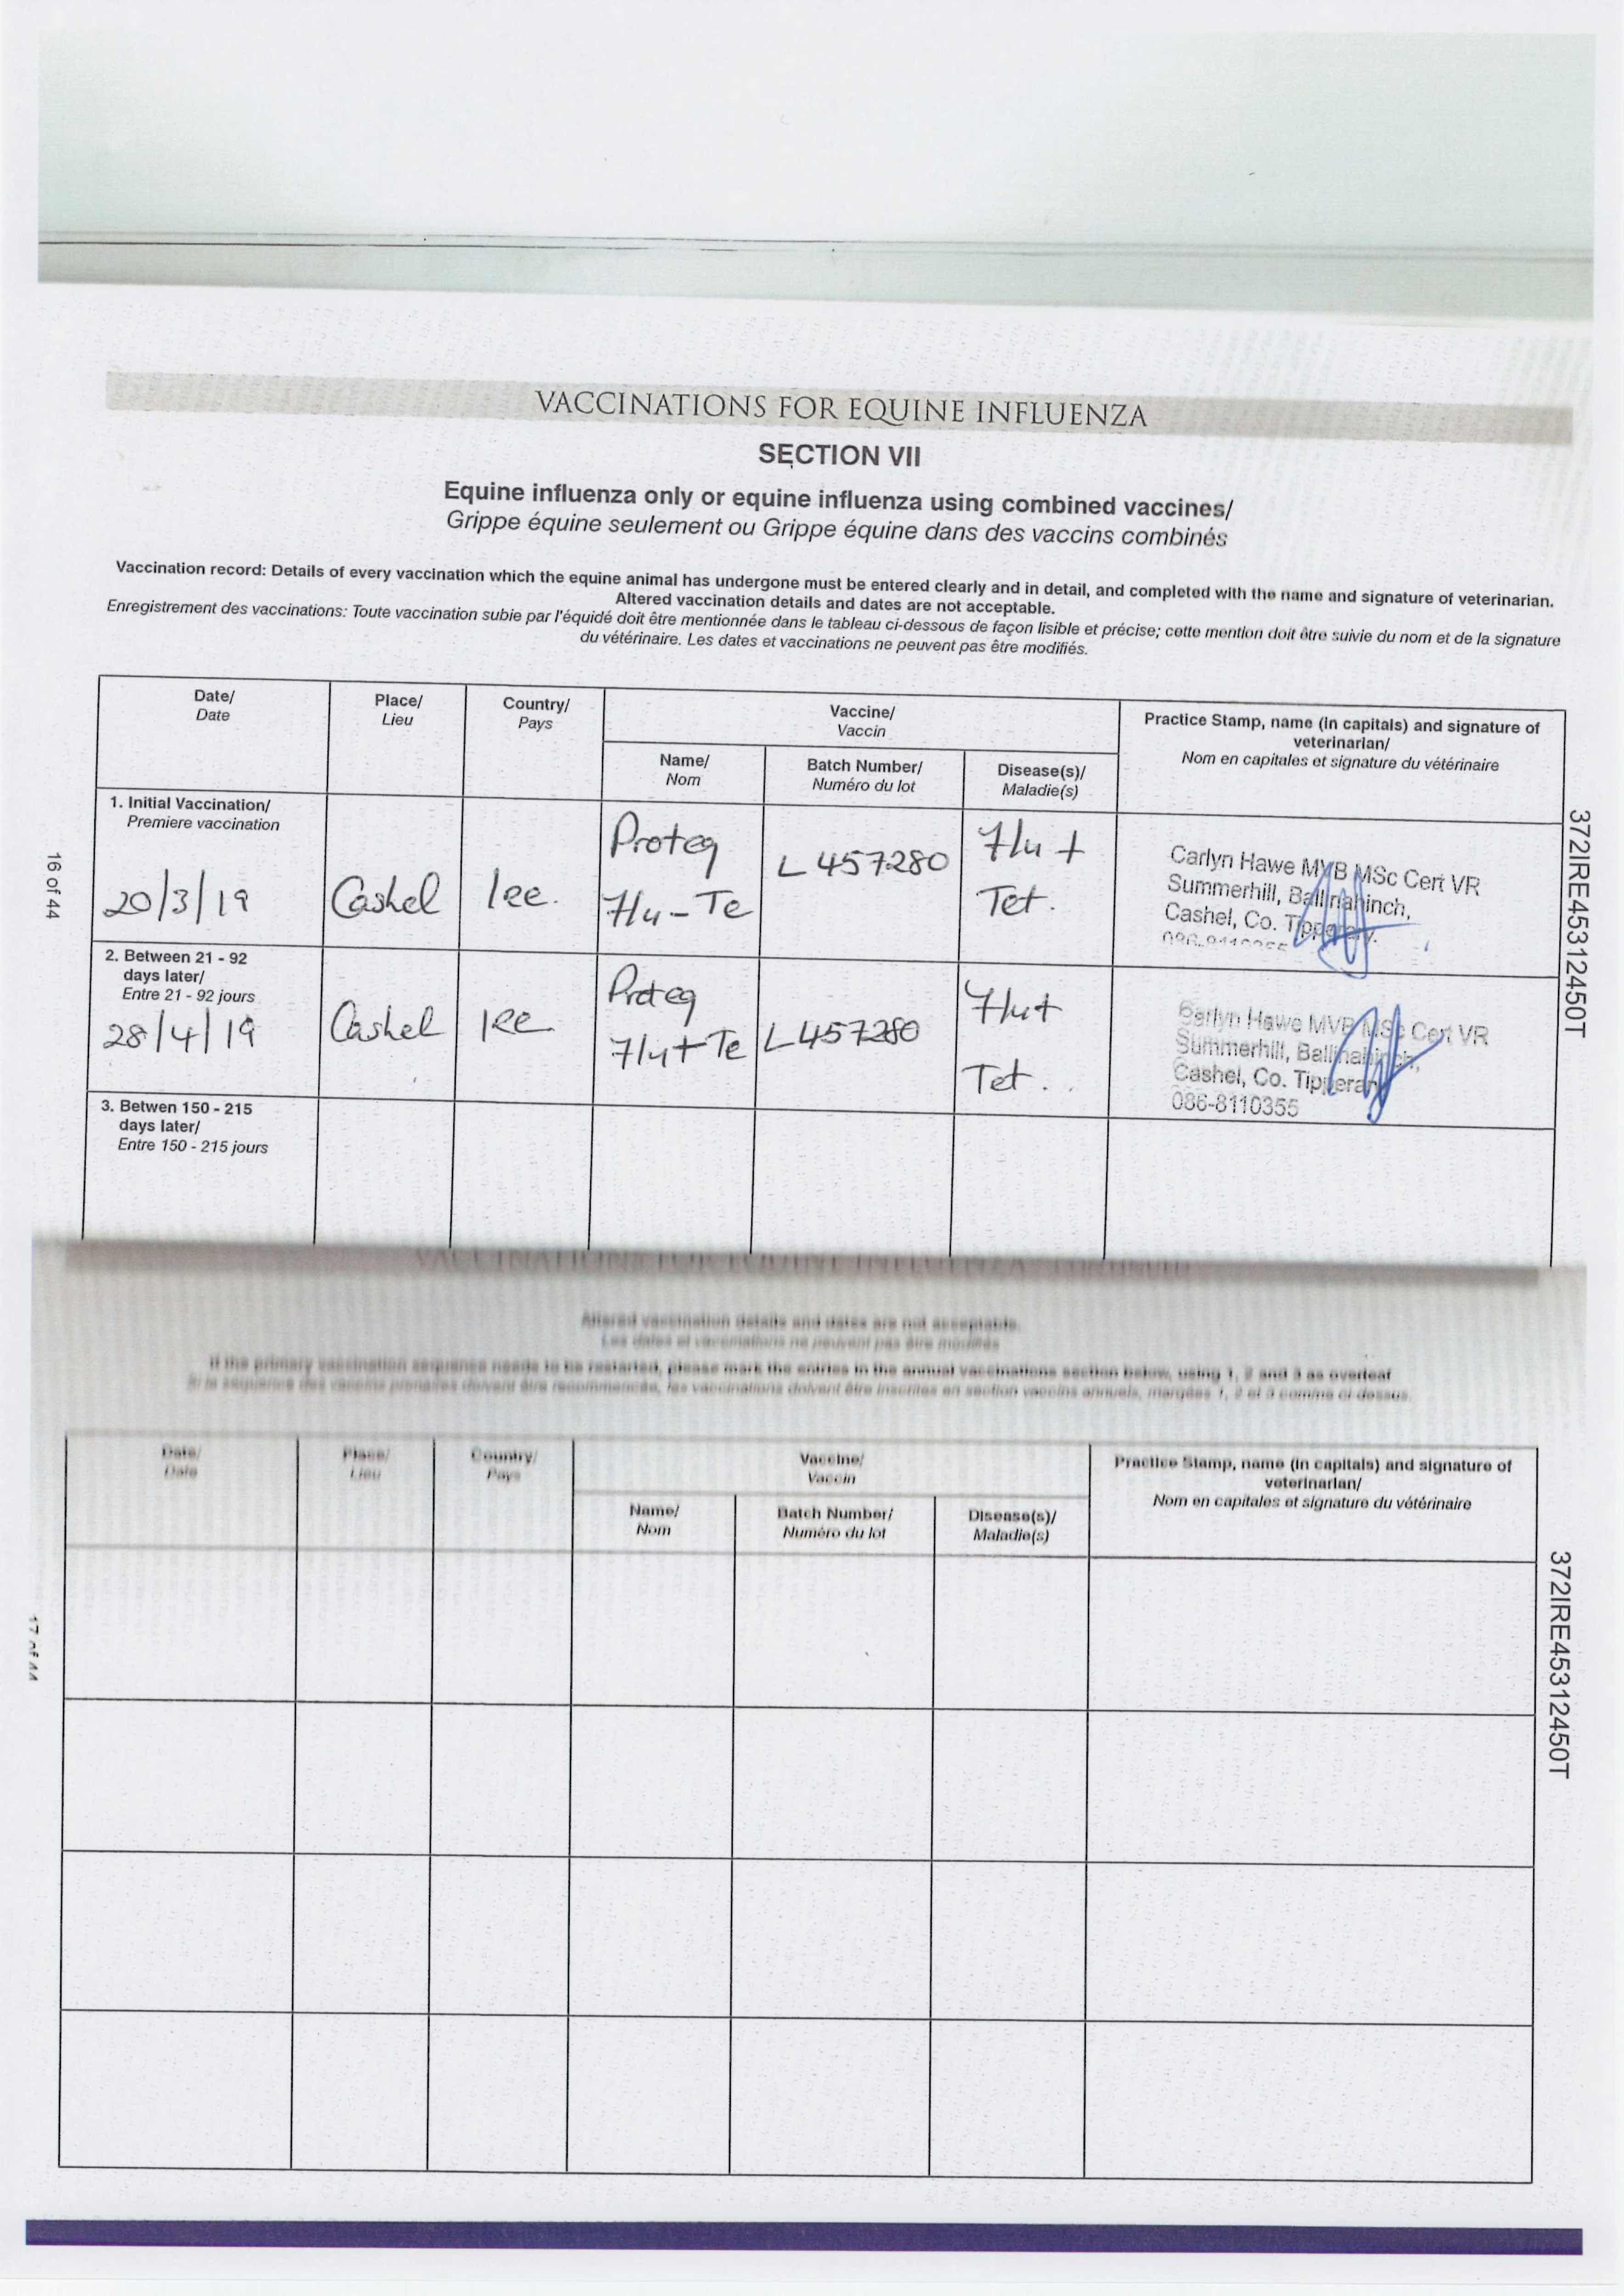 VACCINATIONS FOR EQUINE INFLUENZA
SECTION VII
Equine influenza only or equine influenza using combined vaccines/
Grippe équine seulement ou Grippe équine dans des vaccins combinés
Vaccination record: Details of every vaccination which the equine animal has undergone must be entered clearly and in detail, and completed with the name and signature of veterinarian.
Altered vaccination details and dates are not acceptable.
Enregistrement des vaccinations: Toute vaccination subie par l'équidé doit être mentionnée dans le tableau ci-dessous de façon lisible et précise; cette mention doit être suivie du nom et de la signature
du vétérinaire. Les dates et vaccinations ne peuvent pas être modifiés.
Date/
Date
Place/
Lieu
Country/
Pays
Vaccine/
Vaccin
Name/
Nom
Batch Number/
Numéro du lot
Disease(s)/
Maladie(s)
Practice Stamp, name (in capitals) and signature of
veterinarian/
Nom en capitales et signature du vétérinaire
1. Initial Vaccination/
Premiere vaccination
20/3/19
Cashel
Ire.
Proteq
Flu-Te
L457280
Flu +
Tet.
Carlyn Hawe MVB MSc Cert VR
Summerhill, Ballinahinch,
Cashel, Co. Tipperary.
086-8110355
2. Between 21 - 92
days later/
Entre 21 - 92 jours
28/4/19
Cashel
Ire
Proteq
Flu+Te
L457280
Flu+
Tet.
Carlyn Hawe MVB MSc Cert VR
Summerhill, Ballinahinch,
Cashel, Co. Tipperary
086-8110355
3. Betwen 150 - 215
days later/
Entre 150 - 215 jours
16 of 44
372IRE45312450T
VACCINATIONS FOR EQUINE INFLUENZA - CONTINUED
Altered vaccination details and dates are not acceptable.
Les dates et vaccinations ne peuvent pas être modifiés
If the primary vaccination sequence needs to be restarted, please mark the entries in the annual vaccinations section below, using 1, 2 and 3 as overleaf
Si la sequence des vaccins primaires doivent être recommencée, les vaccinations doivent être inscrites en section vaccins annuels, margées 1, 2 et 3 comme ci-dessus.
Date/
Date
Place/
Lieu
Country/
Pays
Vaccine/
Vaccin
Name/
Nom
Batch Number/
Numéro du lot
Disease(s)/
Maladie(s)
Practice Stamp, name (in capitals) and signature of
veterinarian/
Nom en capitales et signature du vétérinaire
17 of 44
372IRE45312450T